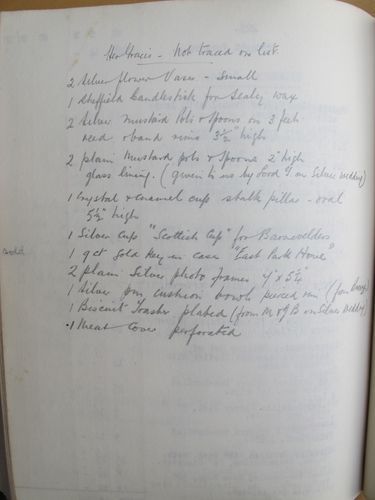 Her Grace's - Not traced on list.
2 Silver flower Vases - Small
1 Sheffield Candlestick for Sealing wax
2 Silver mustard Pots & Spoons on 3 feet
reed & band rims 3½" high
2 plain mustard pots & Spoons 2" high
glass lining. (given to us by on Silver wedding)
1 Crystal & enamel cup stalk pillar - oval
5½" high
1 Silver Cup "Scottish Cup" for Barnevelders
1 9ct Gold Key in case "East Park Home"
2 plain Silver photo frames
1 Silver pin cushion bowl pierced rim
1 Biscuit Toaster plated (from on Silver Wedding)
1 Meat Cover perforated